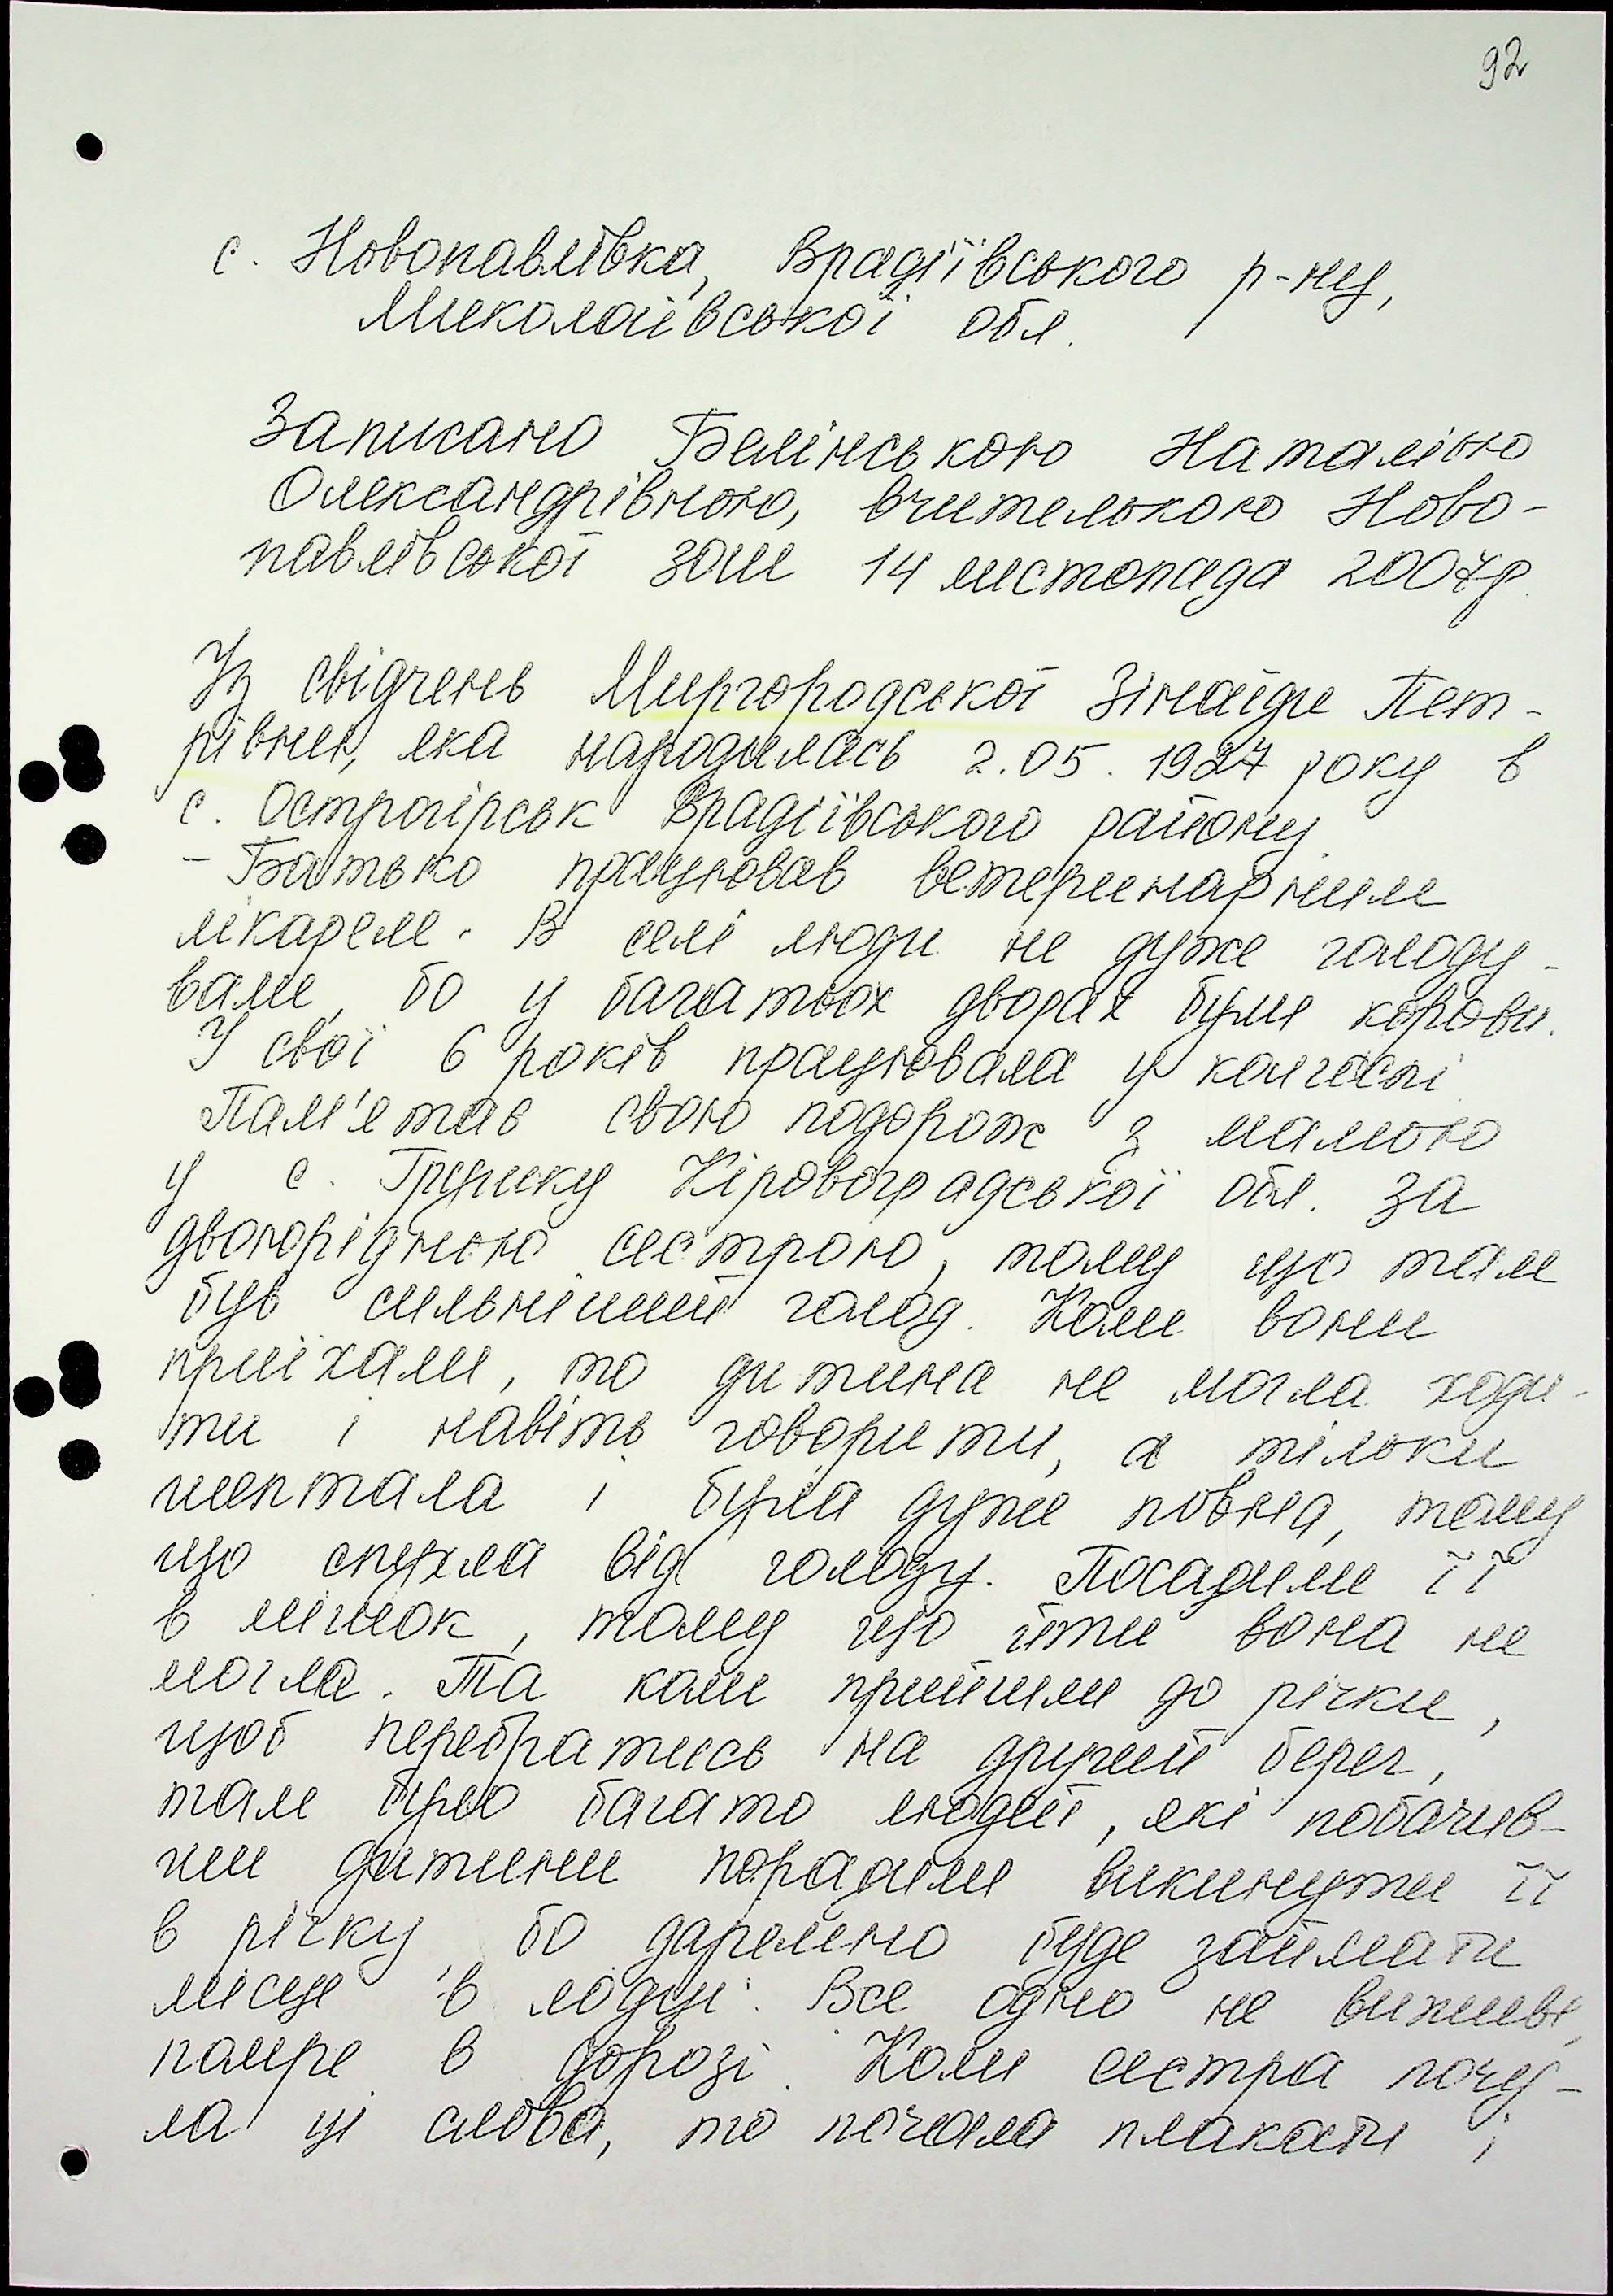 92
с. Новопавлівка, Врадіївського р-ну,
Миколаївської обл.
Записано Белінською Наталією
Олександрівною, вчителькою Ново-
павлівської зош 14 листопада 2007р.
Із свідчень Миргородської Зінаїди Пет-
рівни, яка народилась 2.05. 1927 року в
с. Остроірськ Врадіївського району.
- Батько працював ветеринарним
лікарем. В селі люди не дуже голоду-
вали, бо у багатьох дворах були корови.
У свої 6 років працювала у колгоспі.
Пам'ятає свою подорож з мамою
у с. Грушку Кіровоградської обл. за
двоюрідною сестрою, тому що там
був сильніший голод. Коли вони
приїхали, то дитина не могла ходи-
ти і навіть говорити, а тільки
шептала і була дуже повна, тому
що спухла від голоду. Посадили її
в мішок, тому що йти вона не
могла. Та коли прийшли до річки,
щоб перебратись на другий берег,
там було багато людей, які побачив-
ши дитини порадили викинути її
в річку, бо даремно буде займати
місце в лодці. Все одно не виживе,
помре в дорозі. Коли сестра почу-
ла ці слова, то почала плакати і